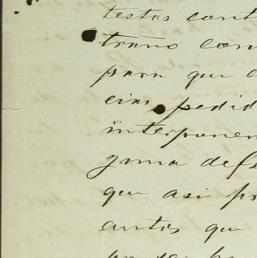 testas cont
trano con
para que
cias pedid
interponer
guna def
que asi pr
autos que